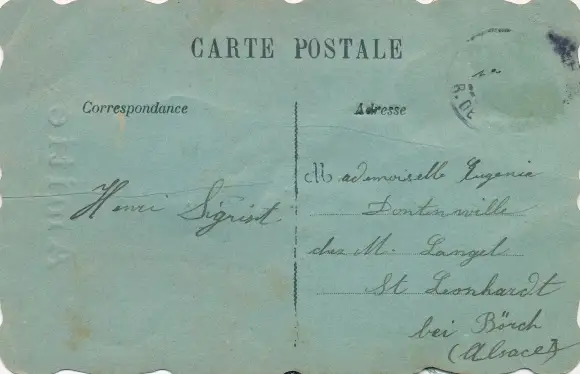 CARTE POSTALE
Correspondance
Adresse
Henri Sigrist
Mademoiselle Eugenie
Dontenville
chez M. Langel
St Leonhardt
bei Börch
(Alsace)